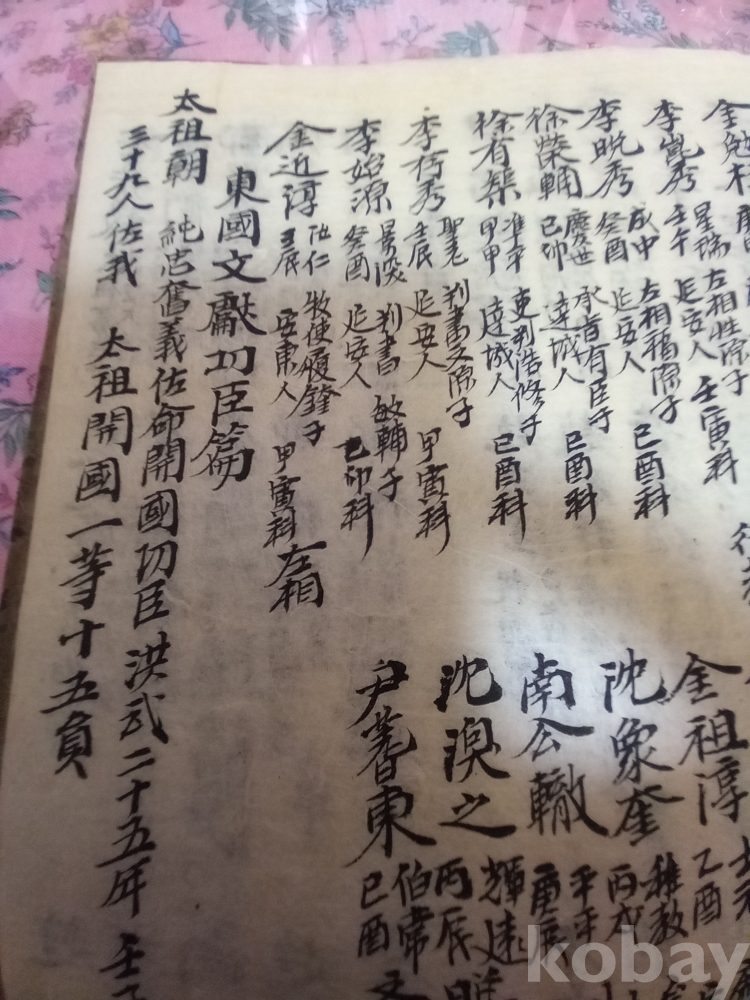 金
李崑秀 星瑞 左相性源子
壬午 延安人 壬寅科
李晩秀 成中 左相福源子
癸酉 延安人 己酉科
徐榮輔 慶世 承旨有臣子
己卯 達城人 己酉科
徐有榘 准平 吏判浩修子
甲申 達城人 己酉科
李存秀 聖老 判書文源子
壬辰 延安人 甲寅科
李始源 景深 判書 敏輔子
癸酉 延安人 乙卯科
金近淳 汝仁 牧使履鏽子
壬辰 安東人 甲寅科 左相
金祖淳
乙酉
沈象奎 穉教
丙戌
南公轍 平平
庚辰
沈渙之 輝遠
丙辰
尹蓍東 伯常
己酉
東國文獻功臣篇
太祖朝 純忠奮義佐命開國功臣 洪武二十五年 壬
三十九人佐我 太祖開國一等十五員
kobay